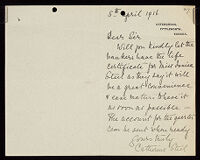 5th April 1916
Dear Sir
Will you kindly let the
bankers have the life
certificate for Miss
Steel as they say it will
be a great convenience
& can make use of it
as soon as possible —
The account for the quarter
can be sent when ready
Yours truly
Catherine Steel